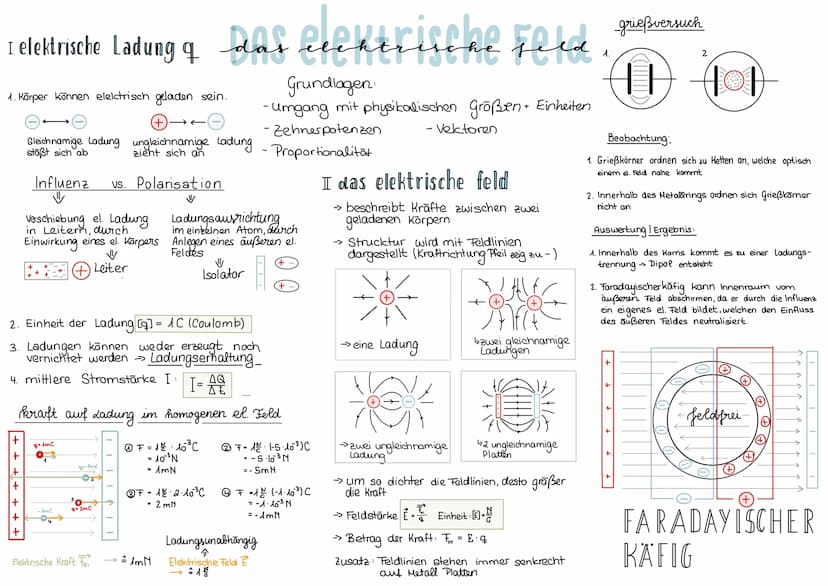 DAS elektrische FELD
das elektrische feld
I elektrische Ladung q
1. Körper können elektrisch geladen sein.
Gleichnamige Ladung
stößt sich ab
ungleichnamige Ladung
zieht sich an
Grundlagen:
- Umgang mit physikalischen Größen + Einheiten
- Zehnerpotenzen
- Vektoren
- Proportionalität
Influenz vs. Polarisation
Verschiebung el. Ladung
in Leitern, durch
Einwirkung eines el. Körpers
Leiter
Ladungsausrichtung
im einzelnen Atom, durch
Anlegen eines äußeren el.
Feldes
Isolator
2. Einheit der Ladung [q] = 1C (Coulomb)
3. Ladungen können weder erzeugt noch
vernichtet werden → Ladungserhaltung
4. mittlere Stromstärke I: I = ΔQ/Δt
Kraft auf Ladung im homogenen el. Feld
① F = 1 N/C · 10⁻³C
= 10⁻³N
= 1mN
② F = 1 N/C · (-5·10⁻³)C
= -5·10⁻³N
= -5mN
③ F = 1 N/C · 2·10⁻³C
= 2mN
④ F = 1 N/C (-1·10⁻³)C
= -1·10⁻³N
= -1mN
Ladungsunabhängig
Elektrische Kraft
≙ 1mN
Elektrische Feld E
II das elektrische feld
→ beschreibt Kräfte zwischen zwei
geladenen Körpern
→ Struktur wird mit Feldlinien
dargestellt (Kraftrichtung Pfeil zeig zu -)
→ eine Ladung
↳ zwei gleichnamige
Ladungen
→ zwei ungleichnamige
Ladung
↳ 2 ungleichnamige
Platten
→ um so dichter die Feldlinien, desto größer
die Kraft
→ Feldstärke E = F/q Einheit: [E] = N/C
→ Betrag der Kraft: F = E · q
Zusatz: Feldlinien stehen immer senkrecht
auf Metall Platten
grießversuch
1.
2.
Beobachtung:
1. Grießkörner ordnen sich zu Ketten an, welche optisch
einem el. Feld nahe kommt
2. Innerhalb des Metallrings ordnen sich Grießkörner
nicht an
Auswertung | Ergebnis:
1. Innerhalb des Korns kommt es zu einer Ladungs-
trennung → Dipol entsteht
2. Faradayischerkäfig kann Innenraum vom
äußeren Feld abschirmen, da er durch die Influenz
ein eigenes el. Feld bildet, welchen den Einfluss
des äußeren Feldes neutralisiert.
feldfrei
FARADAYISCHER
KÄFIG